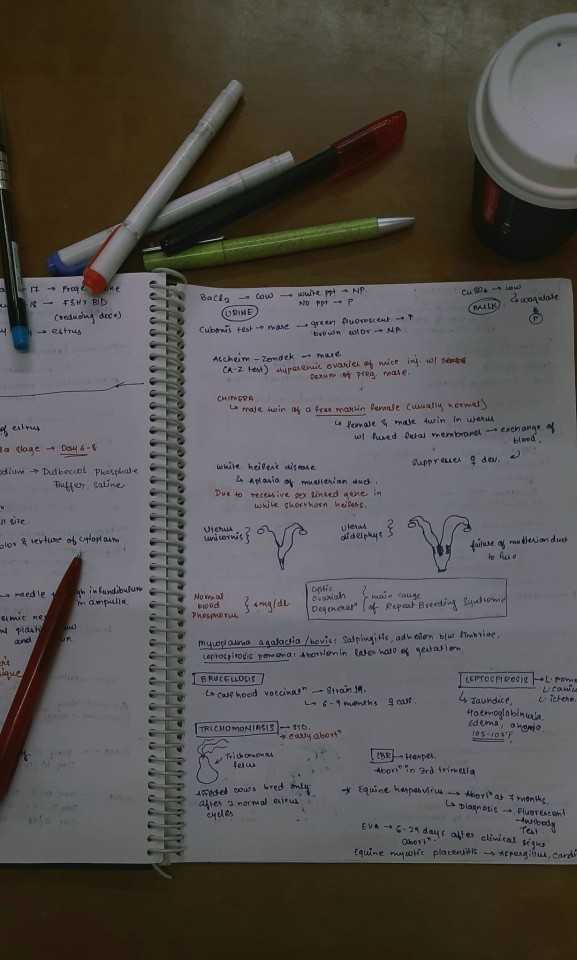 17 → Proge
18 → FSH BID
(reducing dose)
→ estrus
of estrus
stage → Day 6-8
→ Dulbeccos Phosphate
Buffer saline
size
color & texture of cytoplasm
→ needle
infundibulum
in ampulla.
BaCl2 → cow → white ppt → NP.
No ppt → P
URINE
Cubonis test → mare → green fluorescent → P
brown color → NP.
CuSO4 → cow
MILK
coagulate
P
Ascheim-Zondek → mare
(A-Z test) Hyperemic ovaries of mice inj. w/
serum of preg. mare.
CHIMERA
↳ male twin of a free martin female (usually normal)
↳ female & male twin in uterus
w/ fused fetal membranes → exchange of
blood.
suppresses ♀ dev.
White heifer's disease
↳ Aplasia of muellerian duct.
Due to recessive sex linked gene in
white shorthorn heifers.
Uterus
unicornis
uterus
didelphys
failure of mullerian duct
to fuse
Normal
blood
Phosphorus
4mg/dL
Cystic
Ovarian
Degeneratⁿ
main cause
of Repeat Breeding Syndrome
Mycoplasma agalactia/bovis: Salpingitis, adhesion b/w fimbriae.
Leptospirosis pomona: Abortion in later half of gestation.
BRUCELLOSIS
↳ calfhood vaccinatⁿ → Strain 19.
↳ 6-9 months ♀ calf.
LEPTOSPIROSIS → L. pomo
L. canic
L. ictero
↳ Jaundice,
Haemoglobinuria
Edema, anemia
103-107°F
TRICHOMONIASIS → STD.
* early abortⁿ
Trichomonas
fetus.
Affected cows bred only
after 2 normal estrus
cycles
IBR → Herpes.
Abortⁿ in 3rd trimester
* Equine herpesvirus → Abortⁿ at 7 months.
↳ Diagnosis → Fluorescent
Antibody
Test
EVA → 6-29 days after clinical signs
abortⁿ
Equine mycotic placentitis → Aspergillus, candi